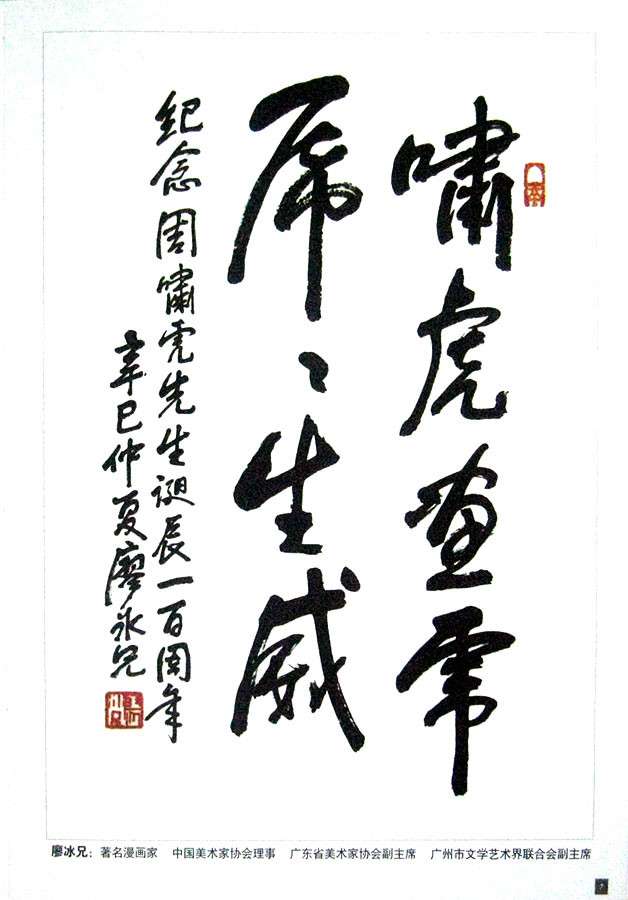 嘯虎画虎
虎〻生威
紀念周嘯虎先生誕辰一百周年
辛巳仲夏廖冰兄
廖冰兄：著名漫画家 中国美术家协会理事 广东省美术家协会副主席 广州市文学艺术界联合会副主席